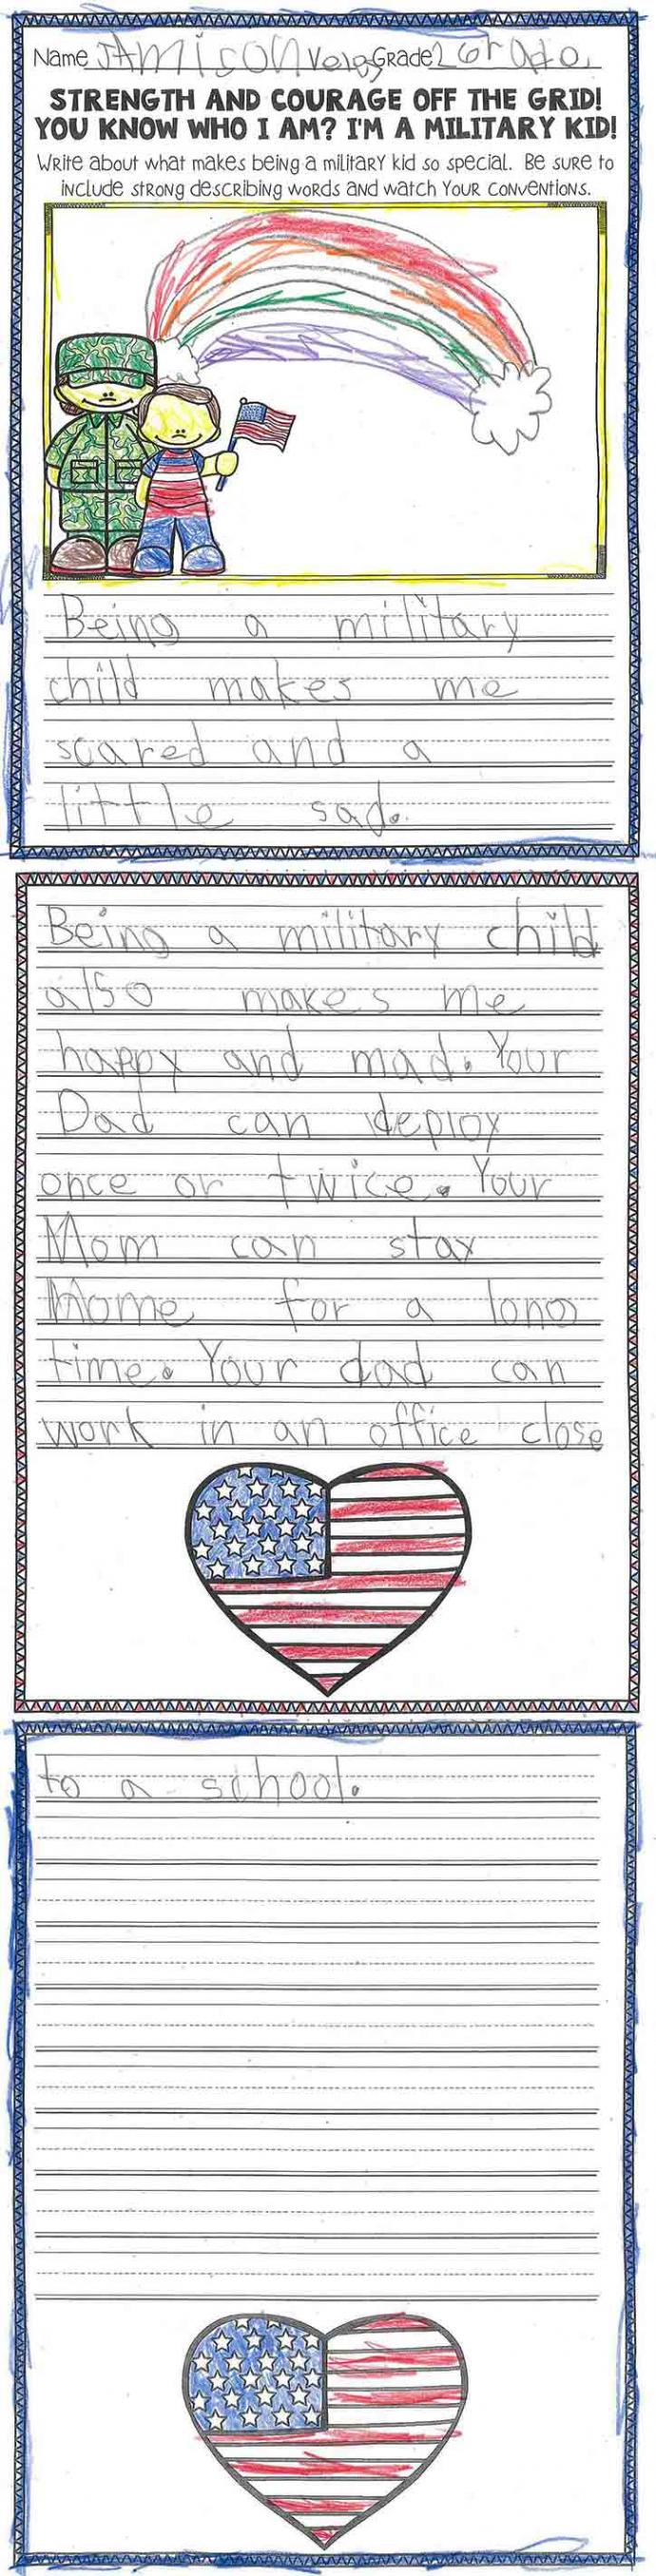 Name Jamison Vela Grade 2 Grade.
STRENGTH AND COURAGE OFF THE GRID!
YOU KNOW WHO I AM? I'M A MILITARY KID!
Write about what makes being a military kid so special. Be sure to
include strong describing words and watch your conventions.
Being a military
child makes me
scared and a
little sad.
Being a military child
also makes me
happy and mad. Your
Dad can deploy
once or twice. Your
Mom can stay
Home for a long
time. Your dad can
work in an office close
to a school.